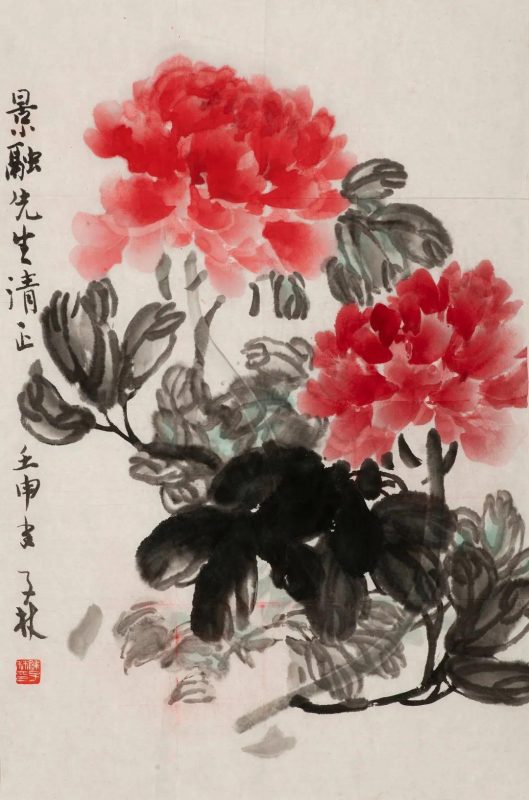 景融先生清正 壬申 子林